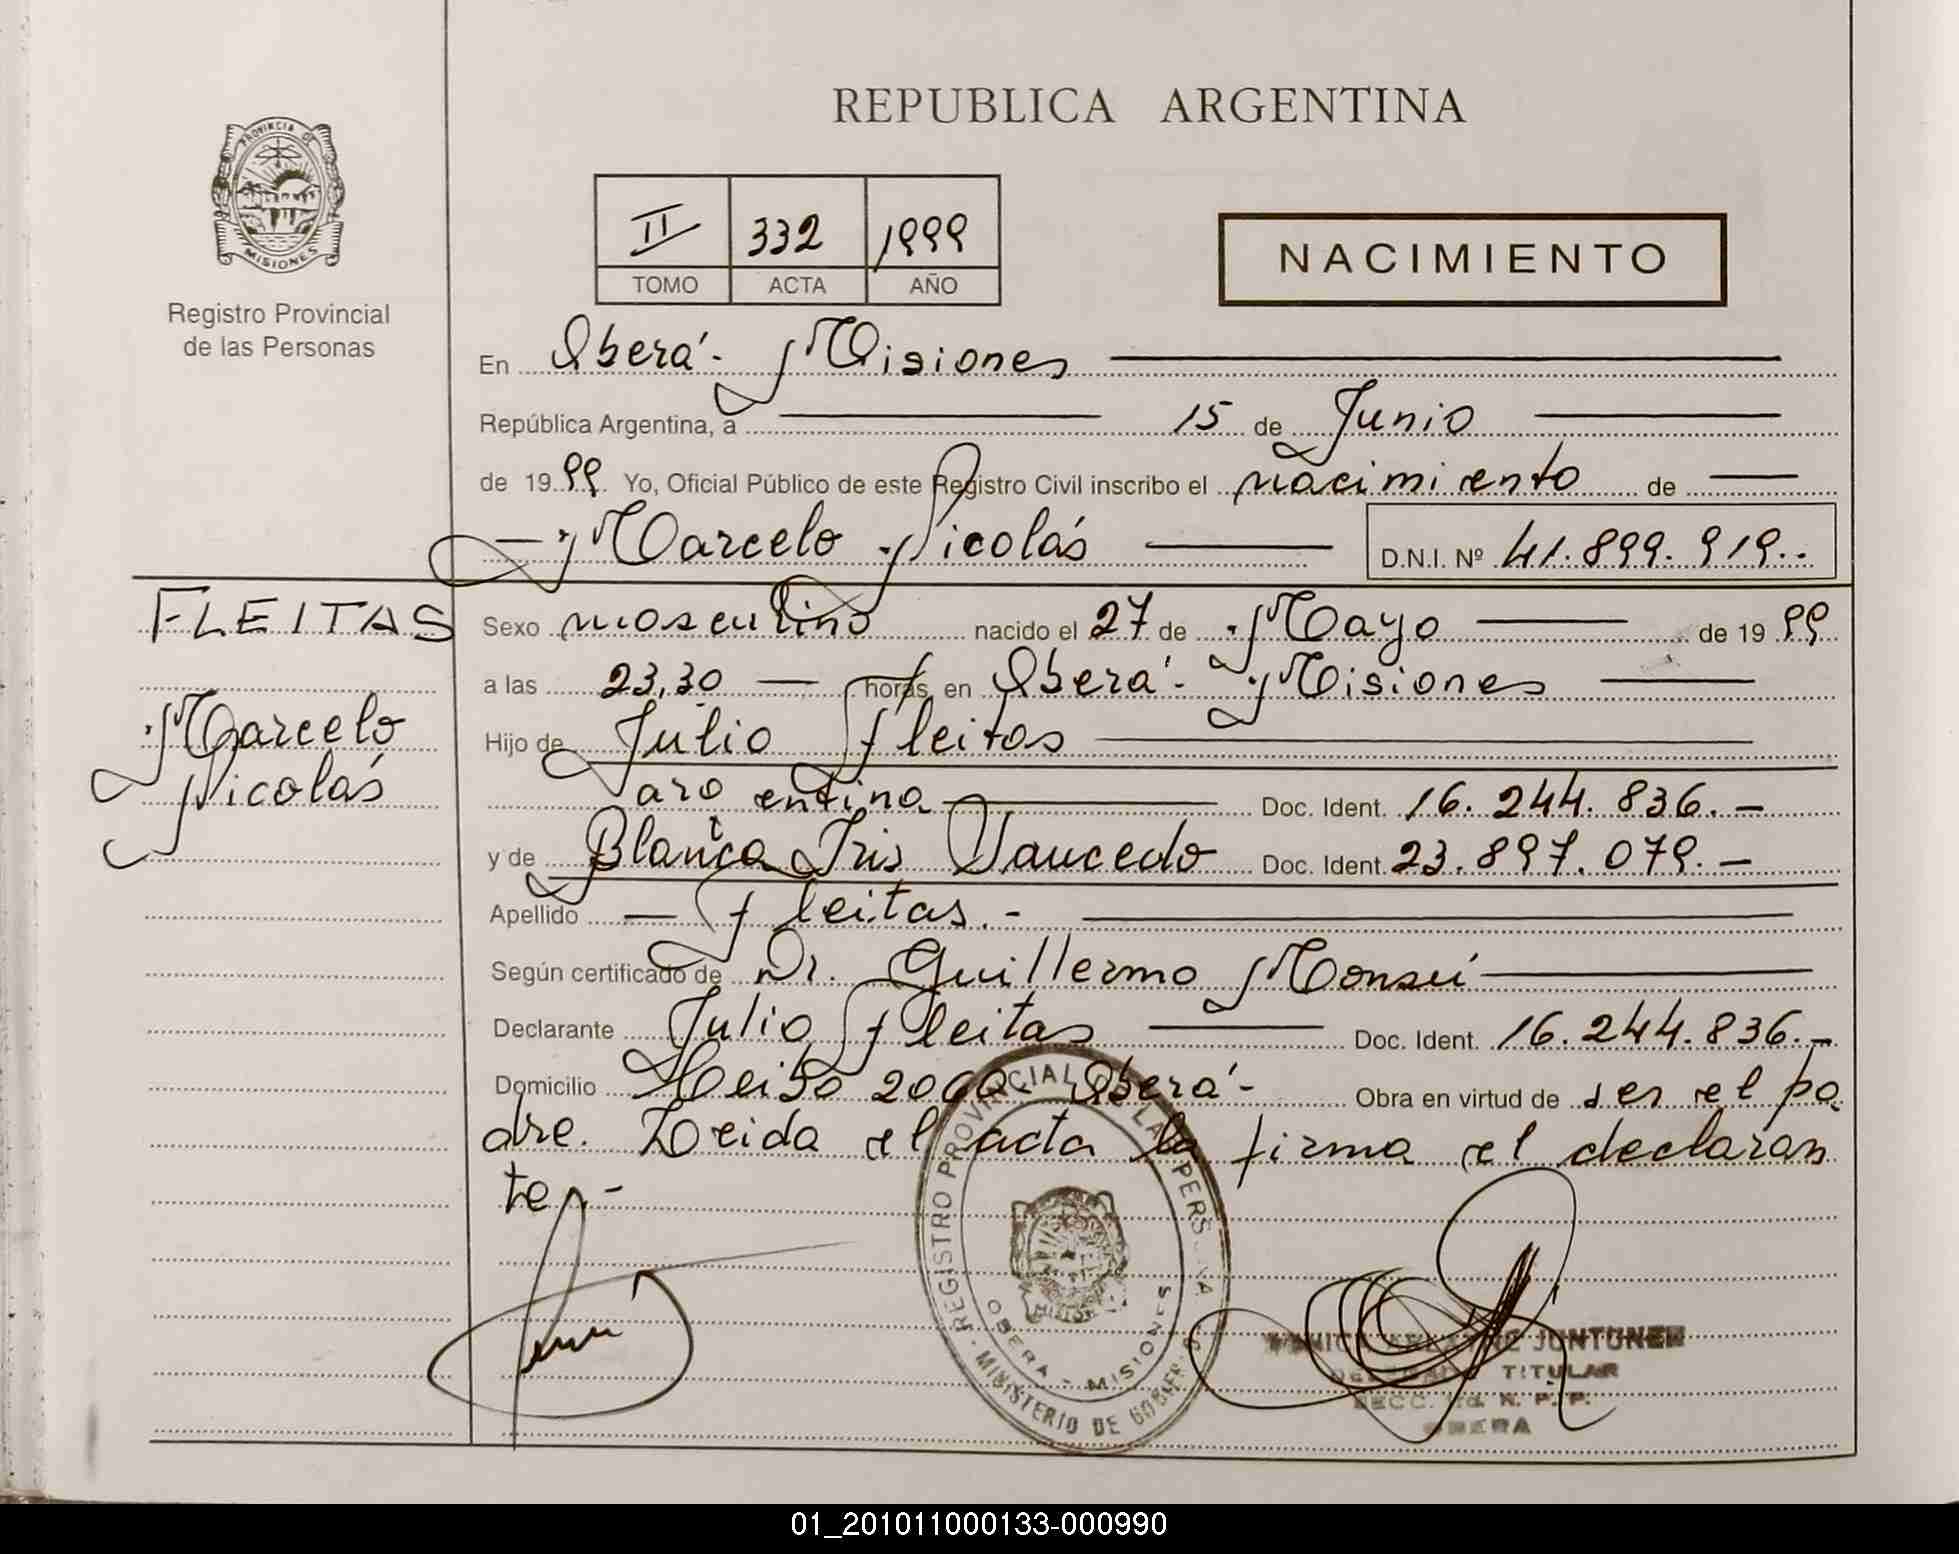 REPUBLICA ARGENTINA
PROVINCIA DE
MISIONES
Registro Provincial
de las Personas
II 332 1999
TOMO ACTA AÑO
NACIMIENTO
En Oberá - Misiones
República Argentina, a 15 de Junio
de 1999 Yo, Oficial Público de este Registro Civil inscribo el nacimiento de
Marcelo Nicolás D.N.I. Nº 41.899.919.-
FLEITAS
Marcelo
Nicolás
Sexo masculino nacido el 27 de Mayo de 1999
a las 23,30 horas, en Oberá - Misiones
Hijo de Julio Fleitas
argentina Doc. Ident. 16.244.836.-
y de Blanca Iris Saucedo Doc. Ident. 23.897.079.-
Apellido Fleitas.-
Según certificado de Dr. Guillermo
Declarante Julio Fleitas Doc. Ident. 16.244.836.-
Domicilio 2000 - Oberá - Obra en virtud de ser el pa
dre. Leida el acta la firma el declaran
te.-
REGISTRO PROVINCIAL DE LAS PERSONAS
OBERA - MISIONES
MINISTERIO DE GOBIERNO
JUNTUNEN
TITULAR
R. P. P.
OBERA
01_201011000133-000990